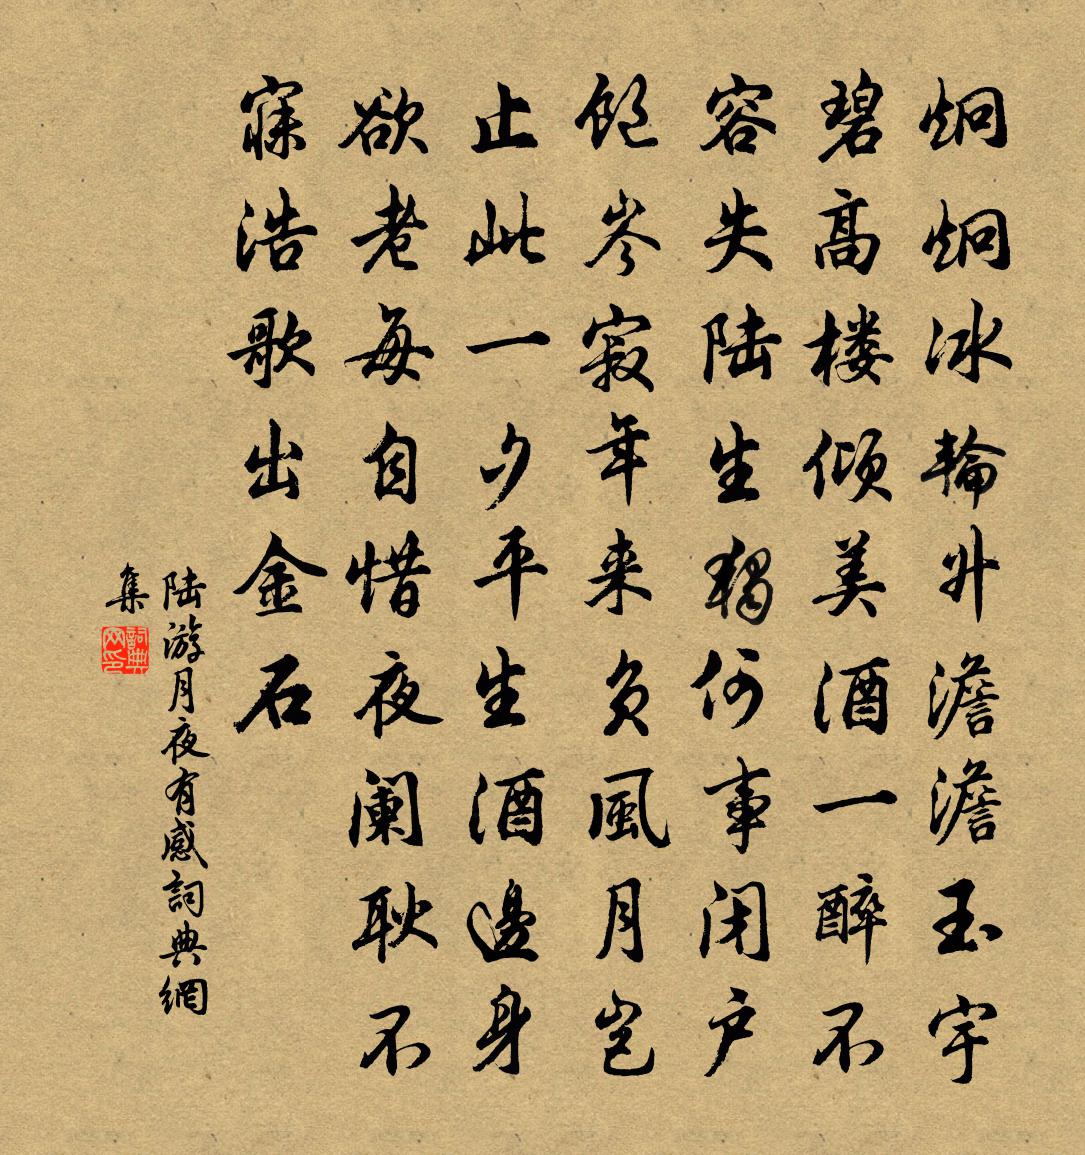 炯炯冰輪升澹澹玉宇
碧高楼倾美酒一醉不
容失陆生獨何事闭户
飽岑寂年来负風月岂
止此一夕平生酒邊身
欲老每自惜夜阑耿不
寐浩歌出金石
陆游月夜有感詞典網
集
詞典网印